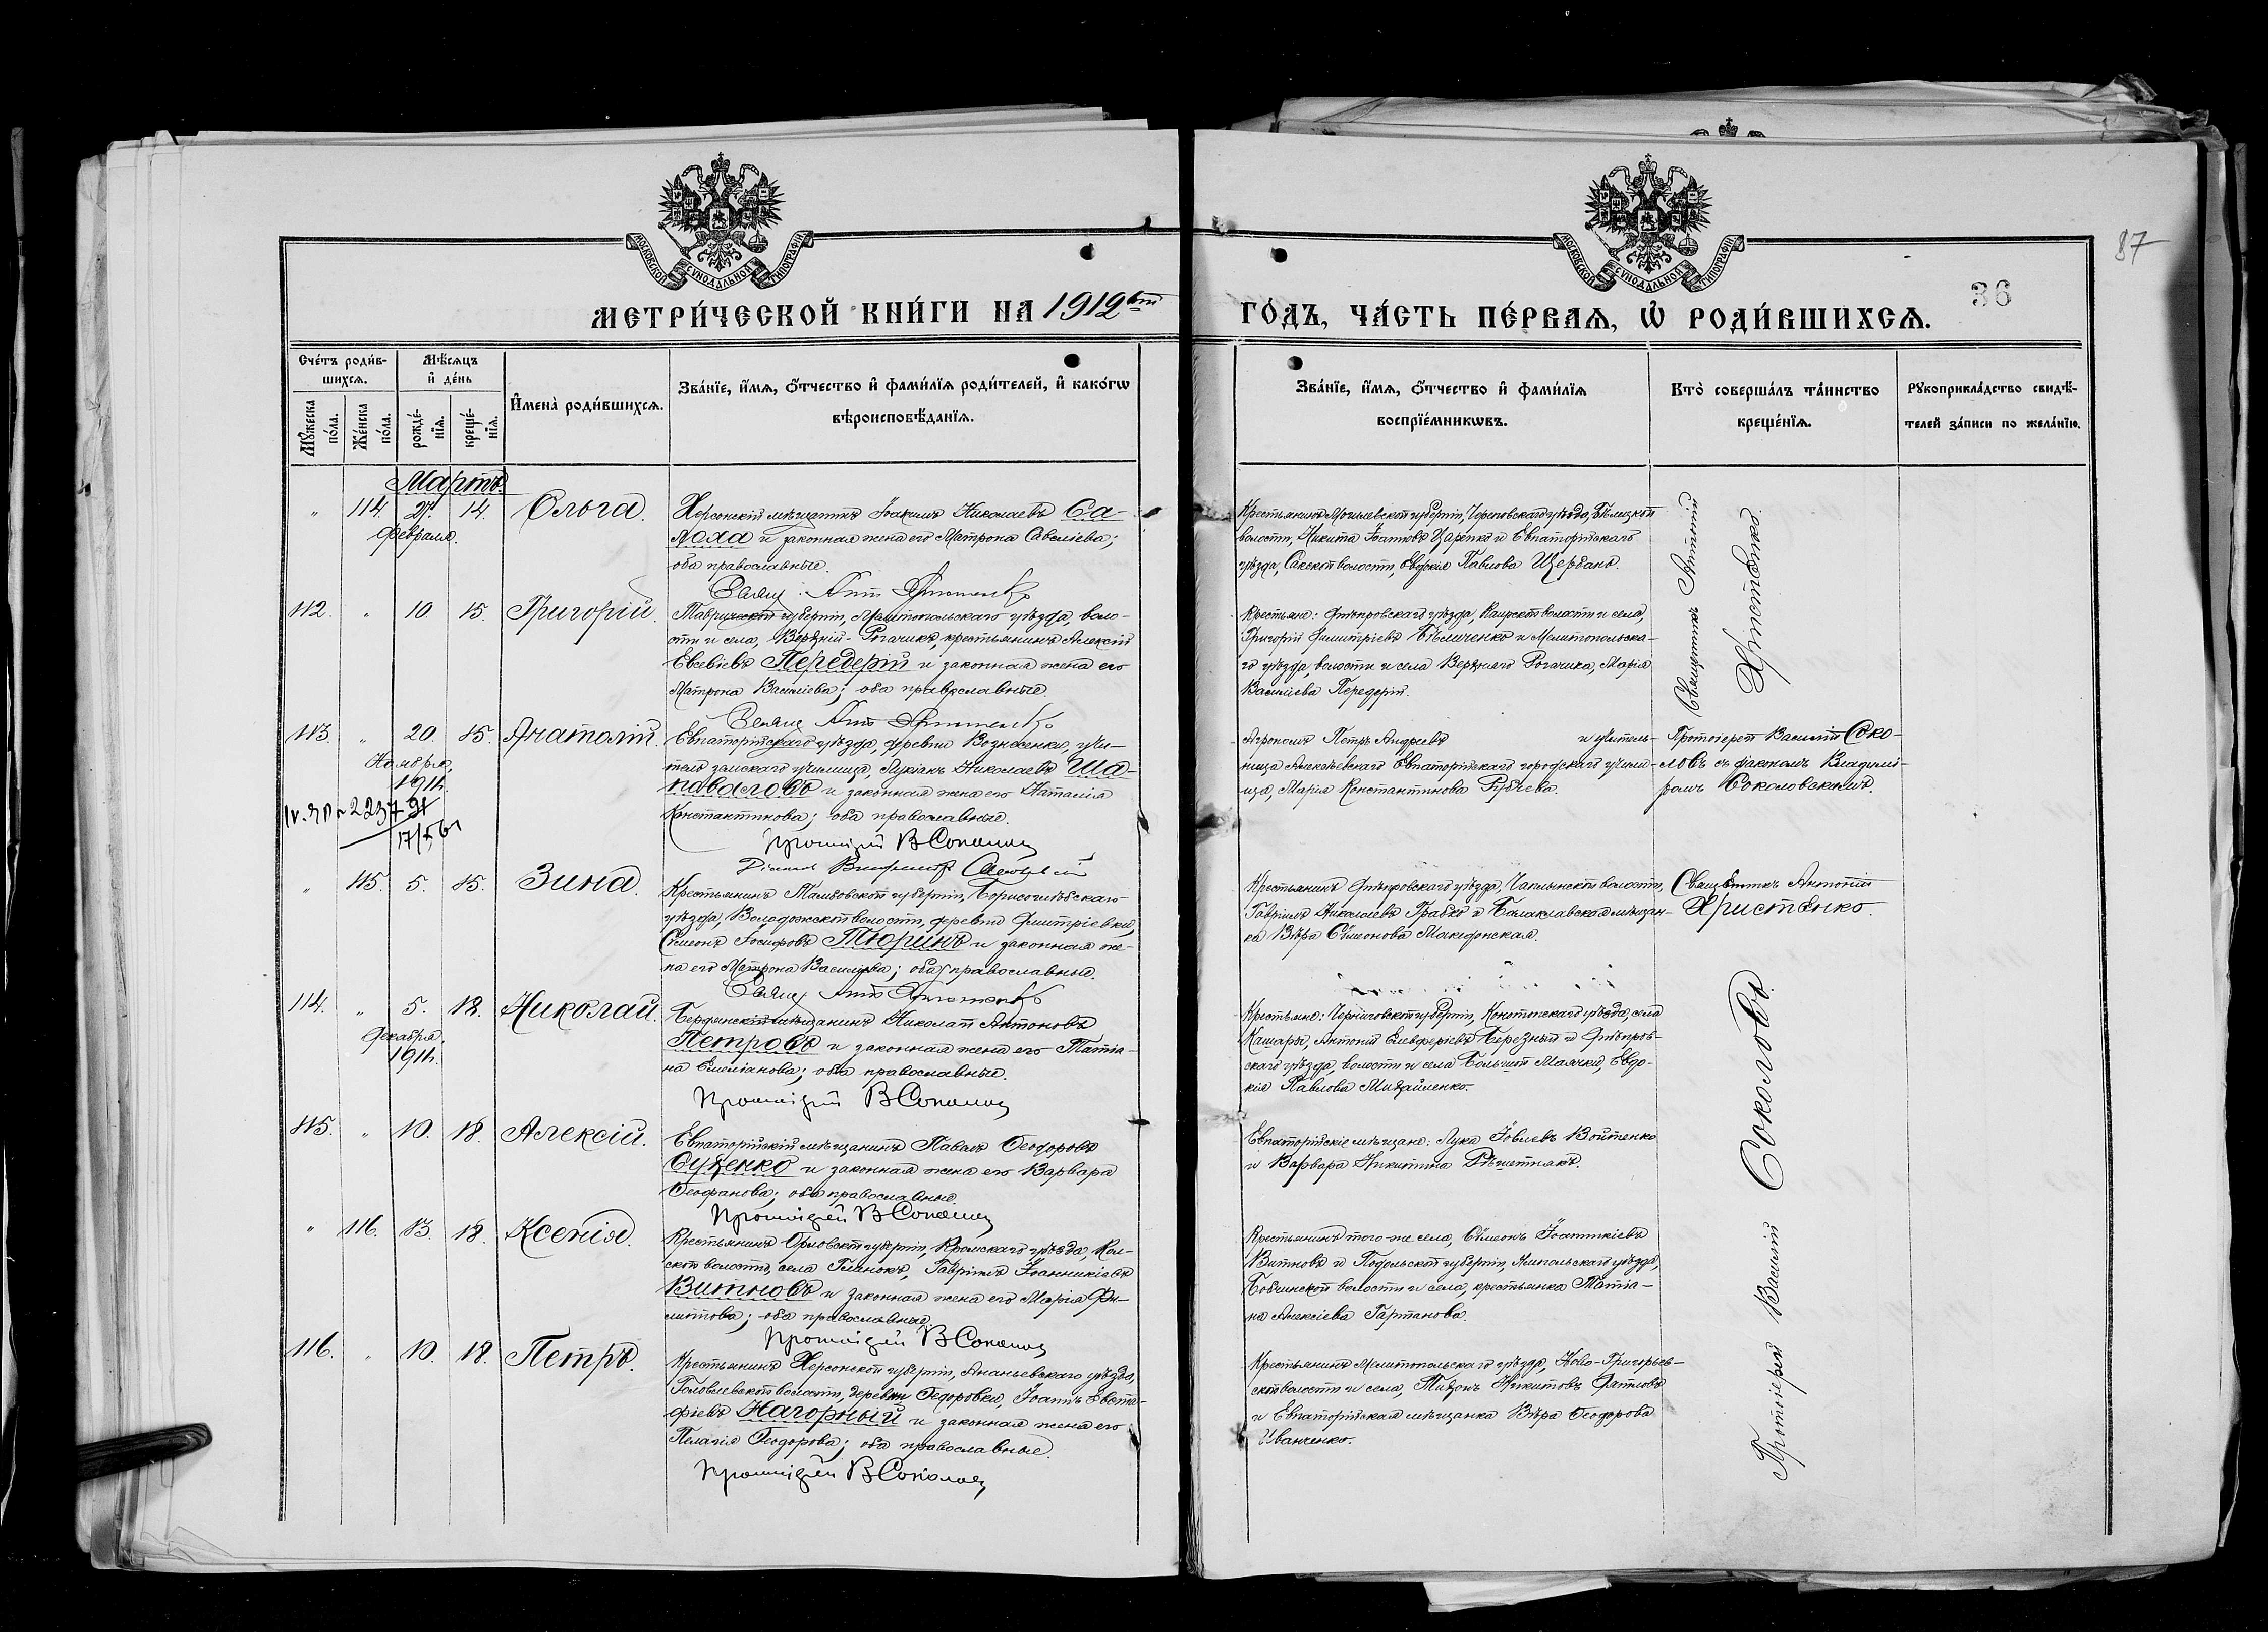 МОСКОВСКОЙ СѴНОДАЛЬНОЙ ТИПОГРАФІИ
МОСКОВСКОЙ СѴНОДАЛЬНОЙ ТИПОГРАФІИ
87
36
МЕТРИ́ЧЕСКОЙ КНИ́ГИ НА 1912
ГО́ДЪ, ЧА́СТЬ ПЕ́РВАЯ, Ѡ҆ РОДИ́ВШИХСЯ.
Сче́тъ роди́в-
шихся.
Мѣ́сяцъ
и҆ де́нь
Мꙋ́жеска
по́ла.
Же́нска
по́ла.
рожде́-
нїя.
креще́-
нїя.
И҆мена̀ роди́вшихся.
Зва́нїе, и҆́мя, ѻ҆́тчество и҆ фами́лїя роди́телей, и҆ како́гѡ
вѣроисповѣ́данїя.
Зва́нїе, и҆́мя, ѻ҆́тчество и҆ фами́лїя
воспрїе́мникѡвъ.
Кто̀ соверша́лъ та́инство
креще́нїя.
Рꙋкоприкла́дство свидѣ́-
телей за́писи по жела́нїю.
Мартъ.
" 114. 27. 14. Ольга.
Февраля.
Херсонскій мѣщанинъ Іоакимъ Николаевъ Са-
и законная жена его Матрона Савеліева;
оба православные.
Крестьянинъ Могилевской губерніи, уѣзда, Бѣлицкой
волости, Никита Іоанновъ Царенко и Евпаторійскаго
уѣзда, Сакской волости, Евдокія Павлова Щербань.
Священникъ Антоній
Христенко.
112. " 10. 15. Григорій.
Таврической губерніи, Мелитопольскаго уѣзда, воло-
сти и села, Верхній-Рогачикъ, крестьянинъ Алексій
Евсевіевъ Передерій и законная жена его
Матрона Василіева; оба православные.
Крестьяне: Днѣпровскаго уѣзда, Каирской волости и села,
Григорій Димитріевъ Бѣличенко и Мелитопольска-
го уѣзда, волости и села Верхняго Рогачика, Марія
Василіева Передерій.
113. " 20. 15. Анатолій.
Ноября
1911.
Евпаторійскаго уѣзда, деревни учи-
тель земскаго училища, Лукіанъ Николаевъ Ша-
поваловъ и законная жена его Наталія
Константинова; оба православные.
Протоіерей В Соколовъ
Агрономъ Петръ Андреевъ и учитель-
ница Алексѣевскаго Евпаторійскаго городскаго учили-
ща, Марія Константинова
Протоіерей Василій Соко-
ловъ съ діакономъ Владимі-
ромъ Соколовскимъ.
" 115. 5. 15. Зина.
Крестьянинъ Тамбовской губерніи, Борисоглѣбскаго
уѣзда, волости, деревни Димитріевки,
Сѵмеонъ Іосифовъ Тюринъ и законная же-
на его Матрона Василіева; оба православные.
Крестьянинъ Днѣпровскаго уѣзда, Чаплынской волости,
Гавріилъ Николаевъ Грабко и Балаклавская мѣщан-
ка Вѣра Сѵмеонова Македонская.
Священникъ Антоній
Христенко.
114. " 5. 18. Николай.
Декабря
1911.
Бердянскій мѣщанинъ Николай Антоновъ
Петровъ и законная жена его Татіа-
на Емеліанова; оба православные.
Протоіерей В Соколовъ
Крестьяне: Черниговской губерніи, Конотопскаго уѣзда, села
Кашары, Антоній Елевферіевъ Березный и Днѣпров-
скаго уѣзда, волости и села Большой Маячки, Евдо-
кія Павлова Михайленко.
Протоіерей Василій Соколовъ.
115. " 10. 18. Алексій.
Евпаторійскій мѣщанинъ Павелъ Ѳеодоровъ
и законная жена его Варвара
Ѳеофанова; оба православные.
Протоіерей В Соколовъ
Евпаторійскіе мѣщане: Лука Іовлевъ Войтенко
и Варвара Никитина Рѣшетнякъ.
" 116. 13. 18. Ксенія.
Крестьянинъ Орловской губерніи, Кромскаго уѣзда,
ской волости, села Гавріилъ Іоанникіевъ
Витновъ и законная жена его Марія Фи-
липпова; оба православные.
Протоіерей В Соколовъ
Крестьянинъ того-же села, Сѵмеонъ Іоанникіевъ
Витновъ и Подольской губерніи, Ямпольскаго уѣзда,
волости и села, крестьянка Татіа-
на Алексіева Гартанова.
116. " 10. 18. Петръ.
Крестьянинъ Херсонской губерніи, Ананьевскаго уѣзда,
волости, деревни Ѳедоровки, Іоаннъ Евста-
фіевъ Нагорный и законная жена его
Пелагія Ѳеодорова; оба православные.
Протоіерей В Соколовъ
Крестьянинъ Мелитопольскаго уѣзда, Ново-Григорьев-
ской волости и села, Тихонъ Никитовъ
и Евпаторійская мѣщанка Вѣра Ѳеодорова
Иваненко.